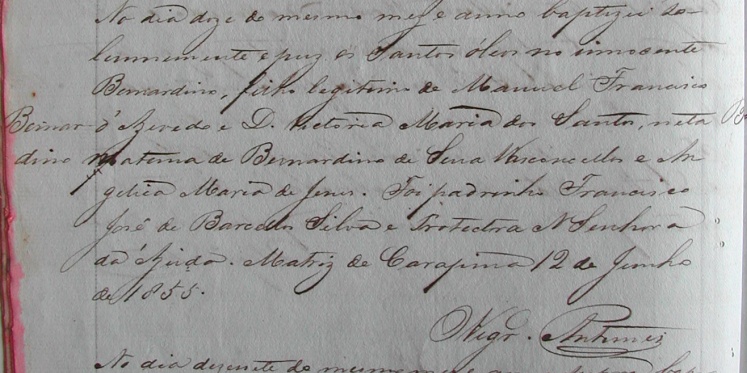 No dia doze do mesmo mez e anno baptizei so-
lennemente e puz os Santos óleos no innocente
Bernardino, filho legitimo de Manuel Francisco
Bernar- d'Azevedo e D. Victoria Maria dos Santos, neta
dino materna de Bernardino de Sena Vasconcellos e An-
gelica Maria de Jesus. Foi padrinho Francisco
José de Barcellos Silva e Protectora N Senhora
da Ajuda. Matriz de Carapina 12 de Junho
de 1855.
Vigr. Antunes
No dia desesete do mesmo mez e anno